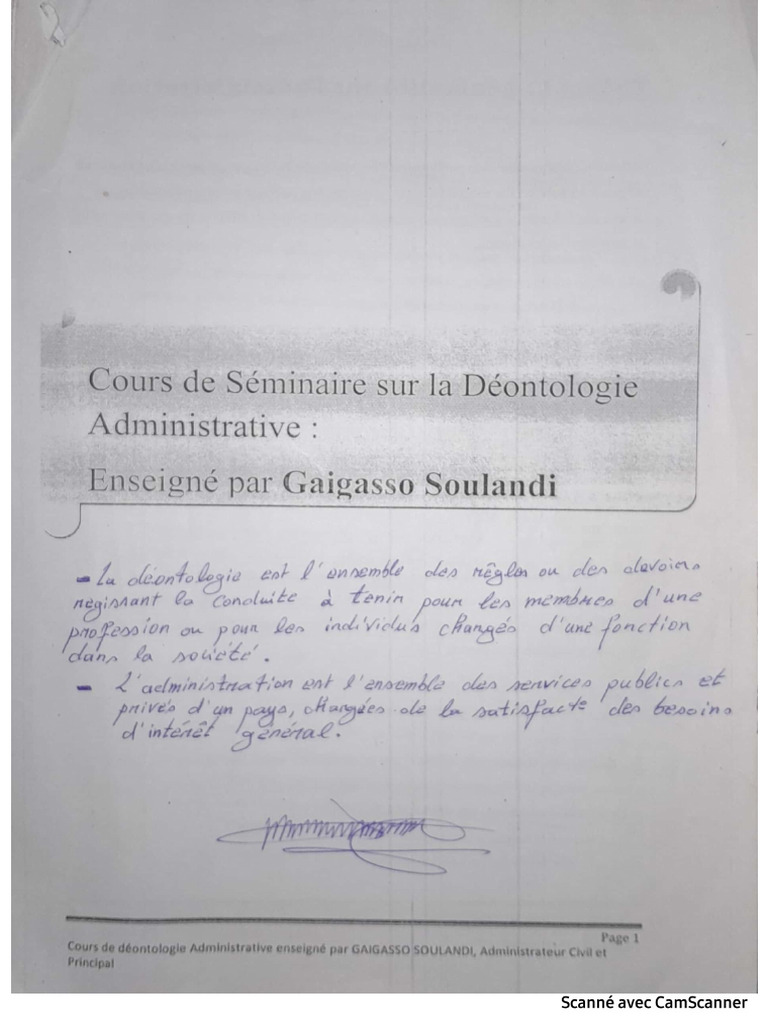 Cours de Séminaire sur la Déontologie
Administrative :
Enseigné par Gaigasso Soulandi
- La déontologie est l'ensemble des règles ou des devoirs
régissant la conduite à tenir pour les membres d'une
profession ou pour les individus chargés d'une fonction
dans la société.
- L'administration est l'ensemble des services publics et
privés d'un pays, chargées de la satisfacte des besoins
d'intérêt général.
Page 1
Cours de déontologie Administrative enseigné par GAIGASSO SOULANDI, Administrateur Civil et
Principal
Scanné avec CamScanner